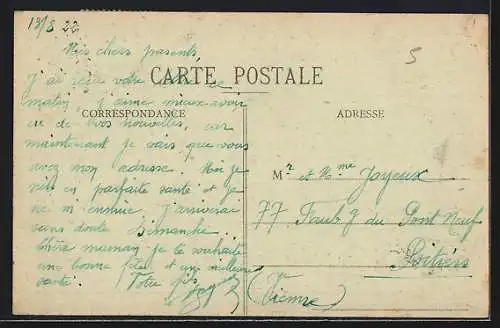 13/8 22
Mes chers parents,
J'ai reçu votre ce
CARTE POSTALE
matin, j'aime mieux avoir
CORRESPONDANCE
eu de bos nouvelles, car
maintenant je vois que vous
avez mon adresse. Moi je
suis en parfaite santé et je
ne m'ennuie. J'arriverai
sans doute Dimanche.
Chère maman je te souhaite
une bonne fête et une meilleure
santé. Votre fils
ADRESSE
5
Mr et Mme Joyeux
77 Faubg du Pont Neuf
Poitiers
(Vienne)